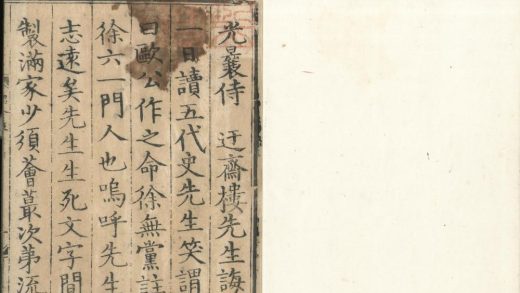 光曩侍 迂齋樓先生誨
一日讀五代史先生笑謂
曰歐公作之命徐無黨註
徐六一門人也嗚呼先生
志遠矣先生生死文字間
製滿家少須薈蕞次弟流